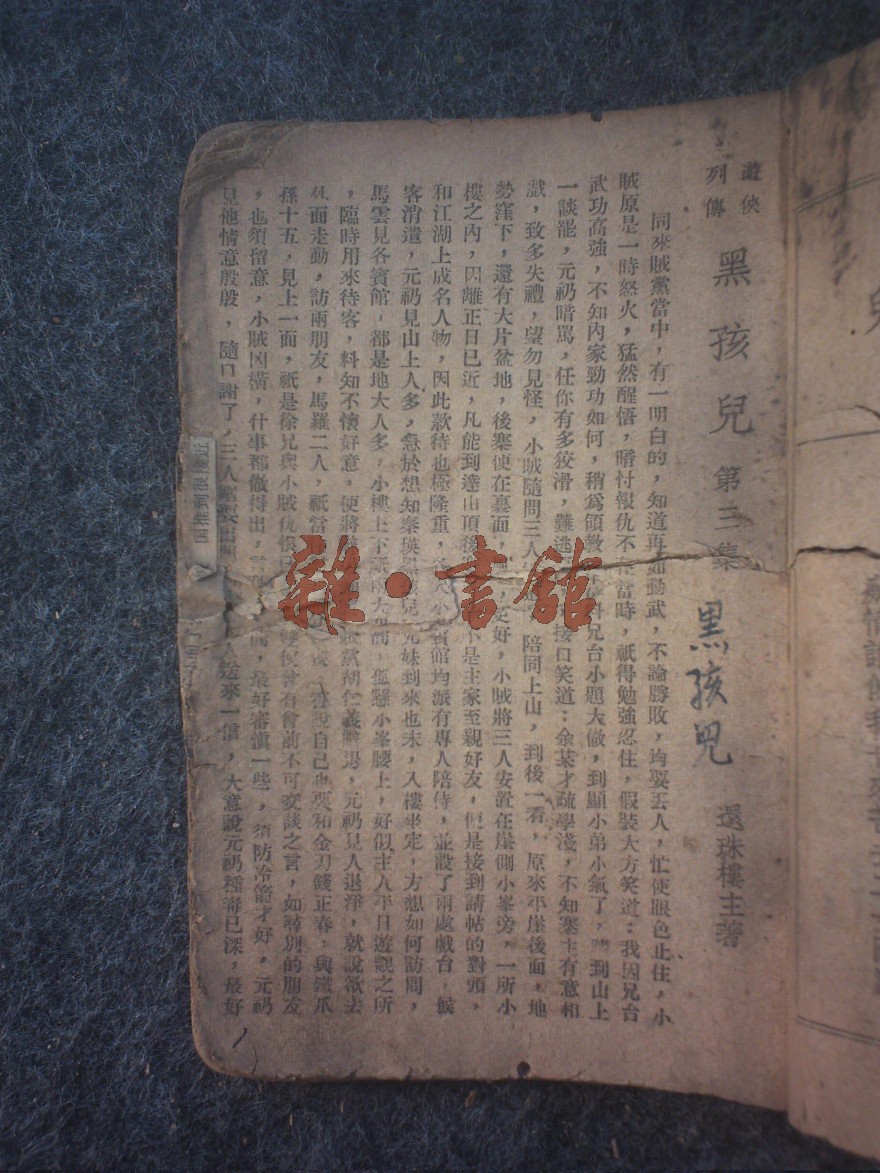 遊俠
列傳
黑孩兒 第三集
黑孩兒
還珠樓主著
同來賊黨當中，有一明白的，知道再如動武，不論勝敗，均要丟人，忙使眼色止住，小
賊原是一時怒火，猛然醒悟，暗忖報仇不 當時，祇得勉強忍住，假裝大方笑道：我因兄台
武功高強，不知內家勁功如何，稍為領教 兄台小題大做，到顯小弟小氣了， 到山上
一談罷，元礽暗罵，任你有多狡滑，難逃 接口笑道：余某才疏學淺，不知寨主有意相
戲，致多失禮，望勿見怪，小賊隨問三人 陪同上山，到後一看，原來平崖後面，地
勢窪下，還有大片盆地，後寨便在裏面， 更好，小賊將三人安置在崖側小峯旁，一所小
樓之內，因離正日已近，凡能到達山頂後 不是主家至親好友，便是接到請帖的對頭，
和江湖上成名人物，因此款待也極隆重， 小賓館均派有專人陪侍，並設了兩處戲台，候
客消遣，元礽見山上人多，急於想知秦瑛 兄妹到來也未，入樓坐定，方想如何訪問，
馬雲見各賓館，都是地大人多，小樓上下 兩大間，孤懸小峯腰上，好似主人平日遊觀之所
，臨時用來待客，料知不懷好意，便將 黨 仁義 退，元礽見人退淨，就說欲去
外面走動，訪兩朋友，馬羅二人，祇當 說自己也要和金刀錢正春，與鐵爪
孫十五，見上一面，祇是徐兄與小賊仇恨 有會前不可交談之言，如尋別的朋友
，也須留意，小賊凶橫，什事都做得出， 最好審慎一些，須防冷箭才好，元礽
見他情意殷殷，隨口謝了，三人 要出門 人送來一信，大意說元礽種毒已深，最好
雜·書館